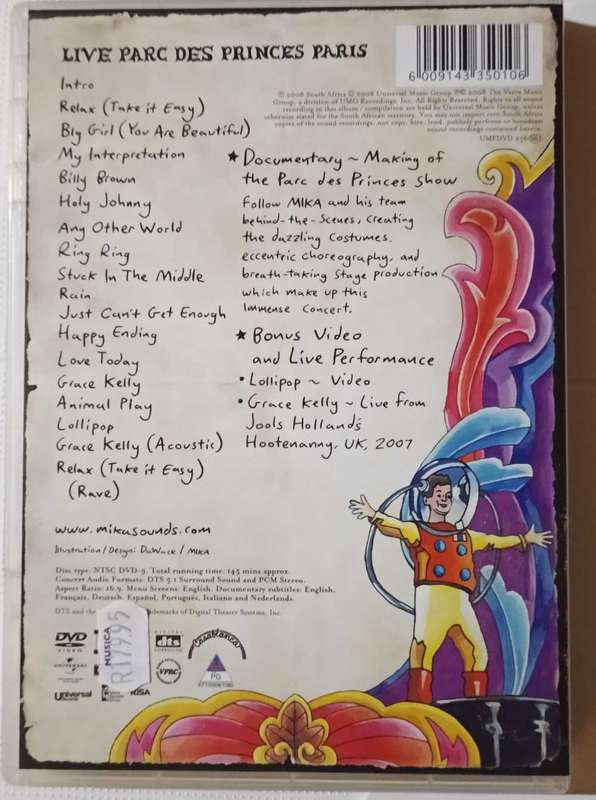 LIVE PARC DES PRINCES PARIS
6 009143 350106
℗ 2008 South Africa © 2008 Universal Music Group ℗© 2008 The Verve Music
Group, a division of UMG Recordings, Inc. All Rights Reserved. Rights to all sound
recording in this album / compilation are held by Universal Music Group, unless
otherwise stated for the South African territory. You may not import into South Africa
copies of the sound recordings, nor copy, hire, lend, publicly perform or broadcast
sound recordings contained herein.
UMFDVD
Intro
Relax (Take it Easy)
Big Girl (You Are Beautiful)
My Interpretation
Billy Brown
Holy Johnny
Any Other World
Ring Ring
Stuck In The Middle
Rain
Just Can't Get Enough
Happy Ending
Love Today
Grace Kelly
Animal Play
Lollipop
Grace Kelly (Acoustic)
Relax (Take it Easy)
(Rave)
★ Documentary ~ Making of
the Parc des Princes Show
Follow MIKA and his team
behind-the-scenes, creating
the dazzling costumes,
eccentric choreography, and
breath-taking stage production
which make up this
immense concert.
★ Bonus Video
and Live Performance
• Lollipop ~ Video
• Grace Kelly ~ Live from
Jools Holland's
Hootenanny, UK, 2007
www.mikasounds.com
Illustration / Design: DaWack / MIKA
Disc type: NTSC DVD-9. Total running time: 145 mins approx.
Concert Audio Formats: DTS 5.1 Surround Sound and PCM Stereo.
Aspect Ratio: 16:9. Menu Screens: English. Documentary subtitles: English,
Français, Deutsch, Español, Português, Italiano and Nederlands.
DTS and the trademarks of Digital Theater Systems, Inc.
DVD
VIDEO
MUSICA
R179.95
DIGITAL
dts
SURROUND
Casablanca
PG
UNIVERSAL
VPRC
Universal
RISA